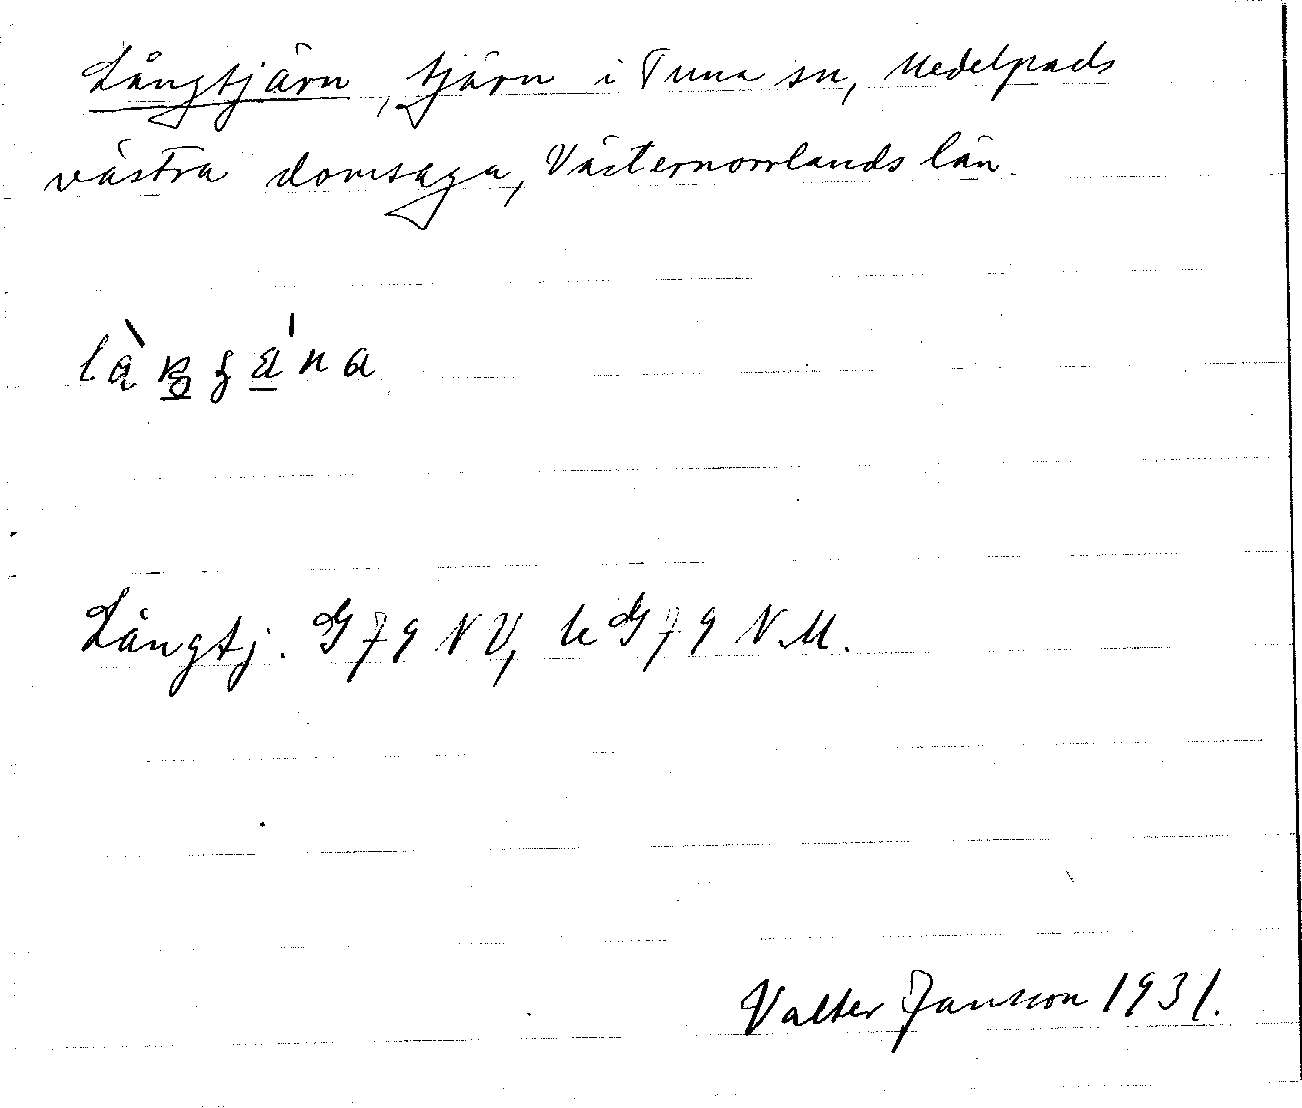 Långtjärn, tjärn i Tuna sn, Medelpads
västra domsaga, Västernorrlands län.
Långtj. G79 NV, le G79 N.M.
Valter Jansson 1931.